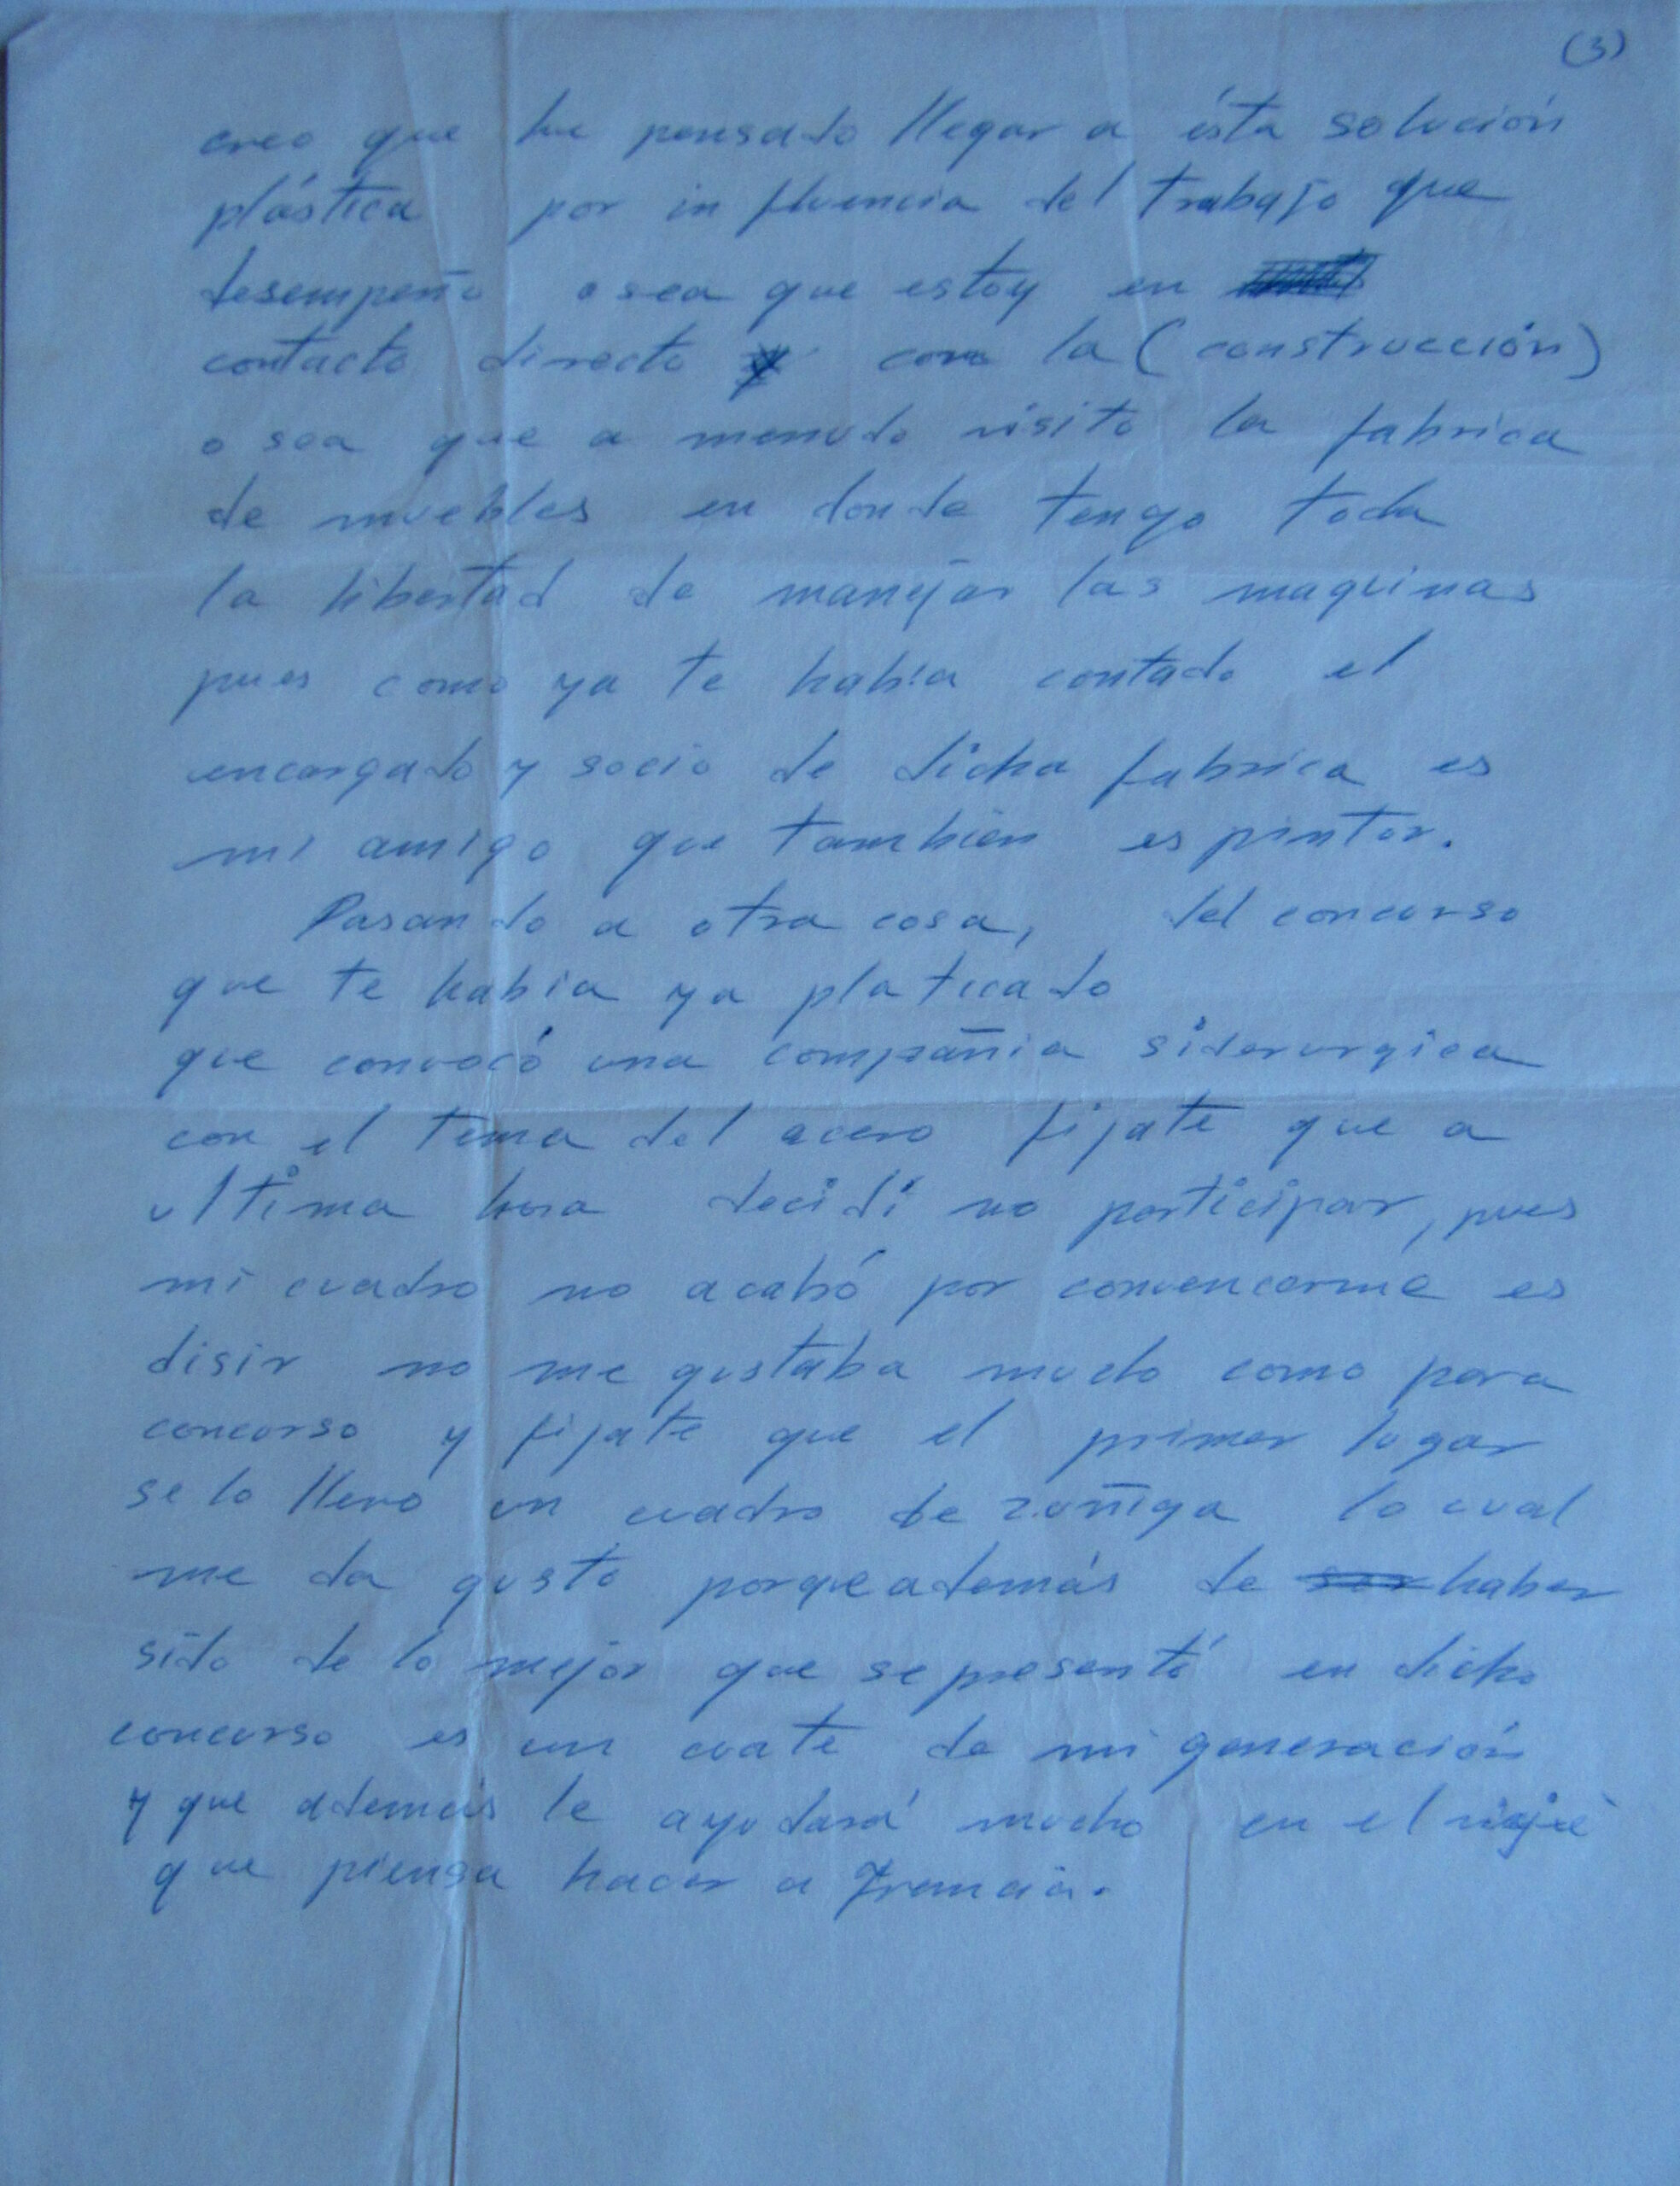 (3)
creo que he pensado llegar a ésta solución
plástica por influencia del trabajo que
desempeño o sea que estoy en
contacto directo con la (construcción)
o sea que a menudo visito la fabrica
de muebles en donde tengo toda
la libertad de manejar las maquinas
pues como ya te había contado el
encargado y socio de dicha fabrica es
mi amigo que tambien es pintor.
Pasando a otra cosa, del concurso
que te habia ya platicado
que convocó una compañia siderurgica
con el tema del acero fijate que a
ultima hora decidi no participar, pues
mi cuadro no acabó por convencerme es
disir no me gustaba mucho como para
concurso y fijate que el primer lugar
se lo llevo un cuadro de zuñiga lo cual
me da gusto porque además de ser haber
sido de lo mejor que se presentó en dicho
concurso es un cuate de mi generación
y que además le ayudará mucho en el viaje
que piensa hacer a Francia.